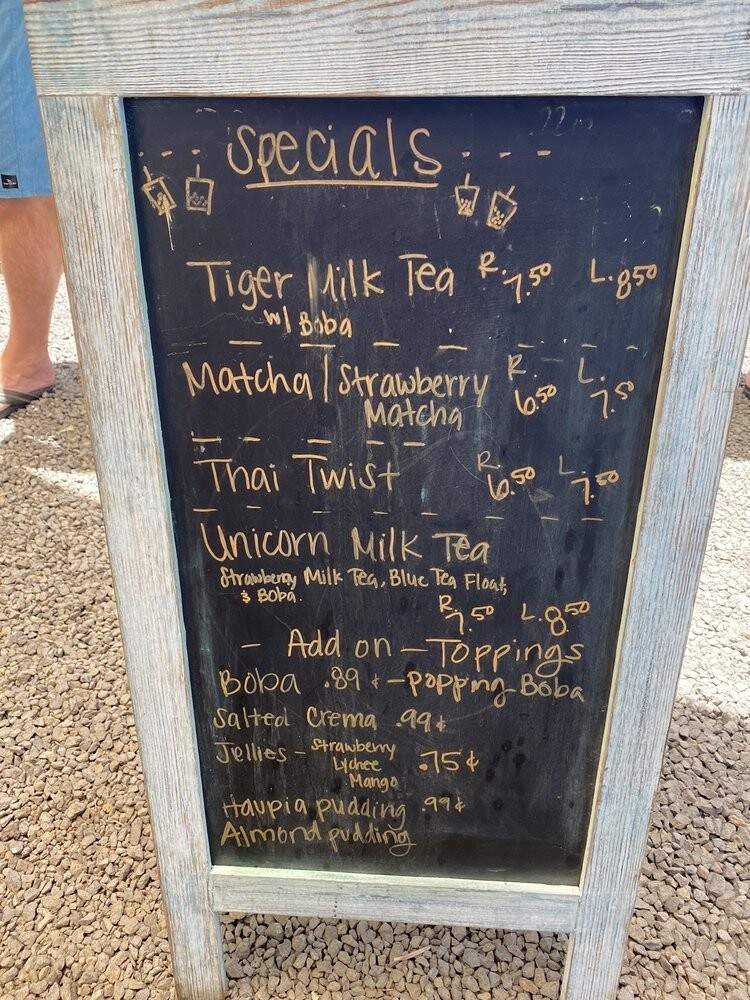 Specials
Tiger Milk Tea R. 7.50 L. 8.50
w/ Boba
Matcha / Strawberry Matcha R. 6.50 L. 7.50
Thai Twist R. 6.50 L. 7.50
Unicorn Milk Tea
Strawberry Milk Tea, Blue Tea Float,
& Boba.
R. 7.50 L. 8.50
- Add on - Toppings
Boba .89 ¢ - popping Boba
Salted Crema .99¢
Jellies - Strawberry
Lychee .75¢
Mango
Haupia pudding 99¢
Almond pudding